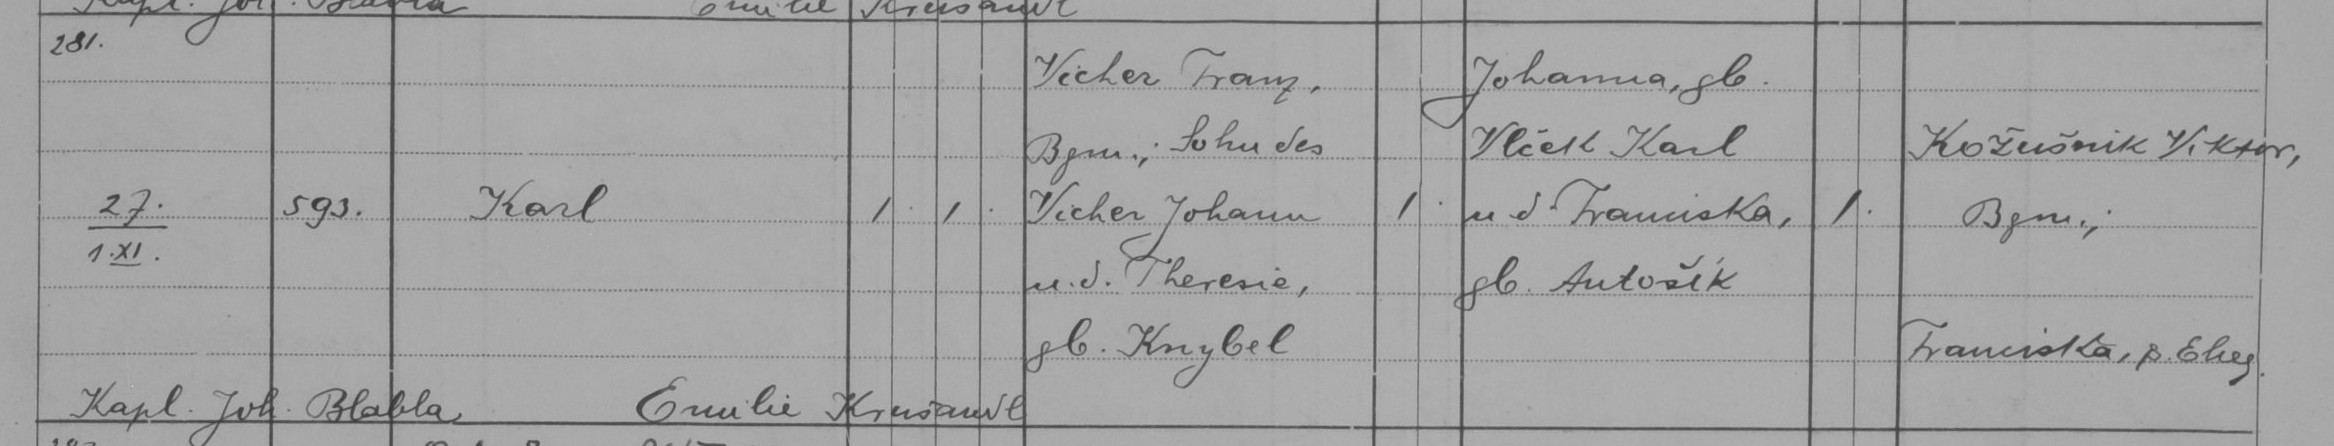 281.
27.
1.XI.
593.
Karl
1. 1.
Vicher Franz,
Bgm.; Sohn des
Vicher Johann
u. d. Theresie,
gb. Knybel
1.
Johanna, gb.
Vlček Karl
u d. Franciska,
gb. Antošik
1.
Kožušnik Viktor,
Bgm.;
Franciska, s. Eheg.
Kapl. Joh. Blabla Emilie